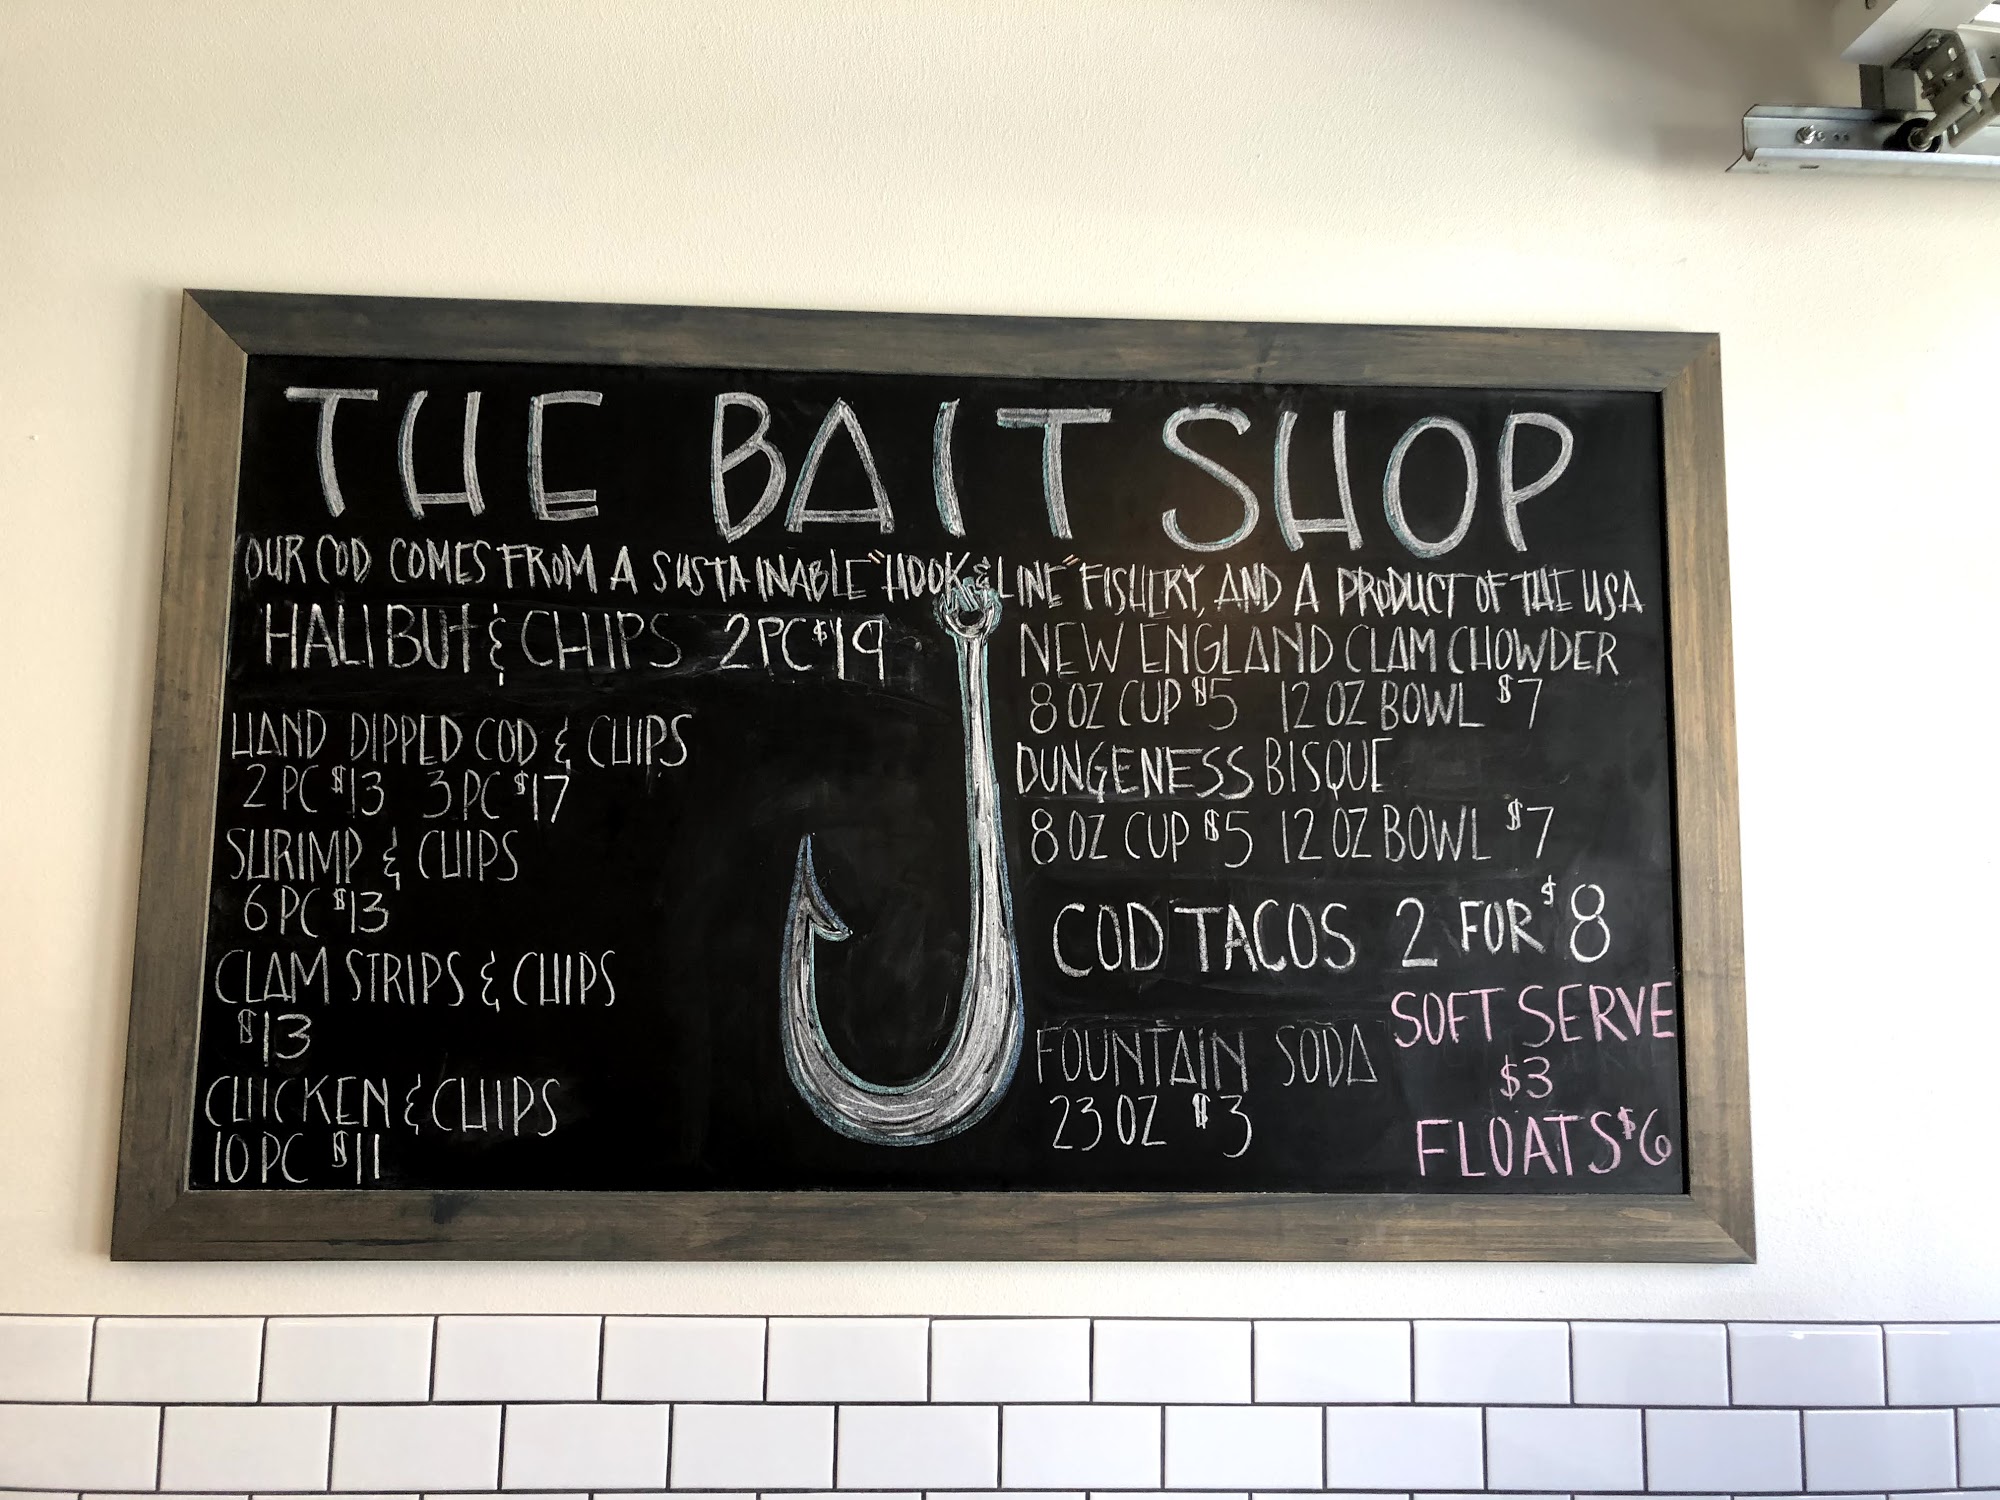 THE BAIT SHOP
OUR COD COMES FROM A SUSTAINABLE "HOOK & LINE" FISHERY, AND A PRODUCT OF THE USA
HALIBUT & CHIPS 2PC $19
HAND DIPPED COD & CHIPS
2 PC $13 3 PC $17
SHRIMP & CHIPS
6 PC $13
CLAM STRIPS & CHIPS
$13
CHICKEN & CHIPS
10 PC $11
NEW ENGLAND CLAM CHOWDER
8 OZ CUP $5 12 OZ BOWL $7
DUNGENESS BISQUE
8 OZ CUP $5 12 OZ BOWL $7
COD TACOS 2 FOR $8
FOUNTAIN SODA
23 OZ $3
SOFT SERVE
$3
FLOATS $6